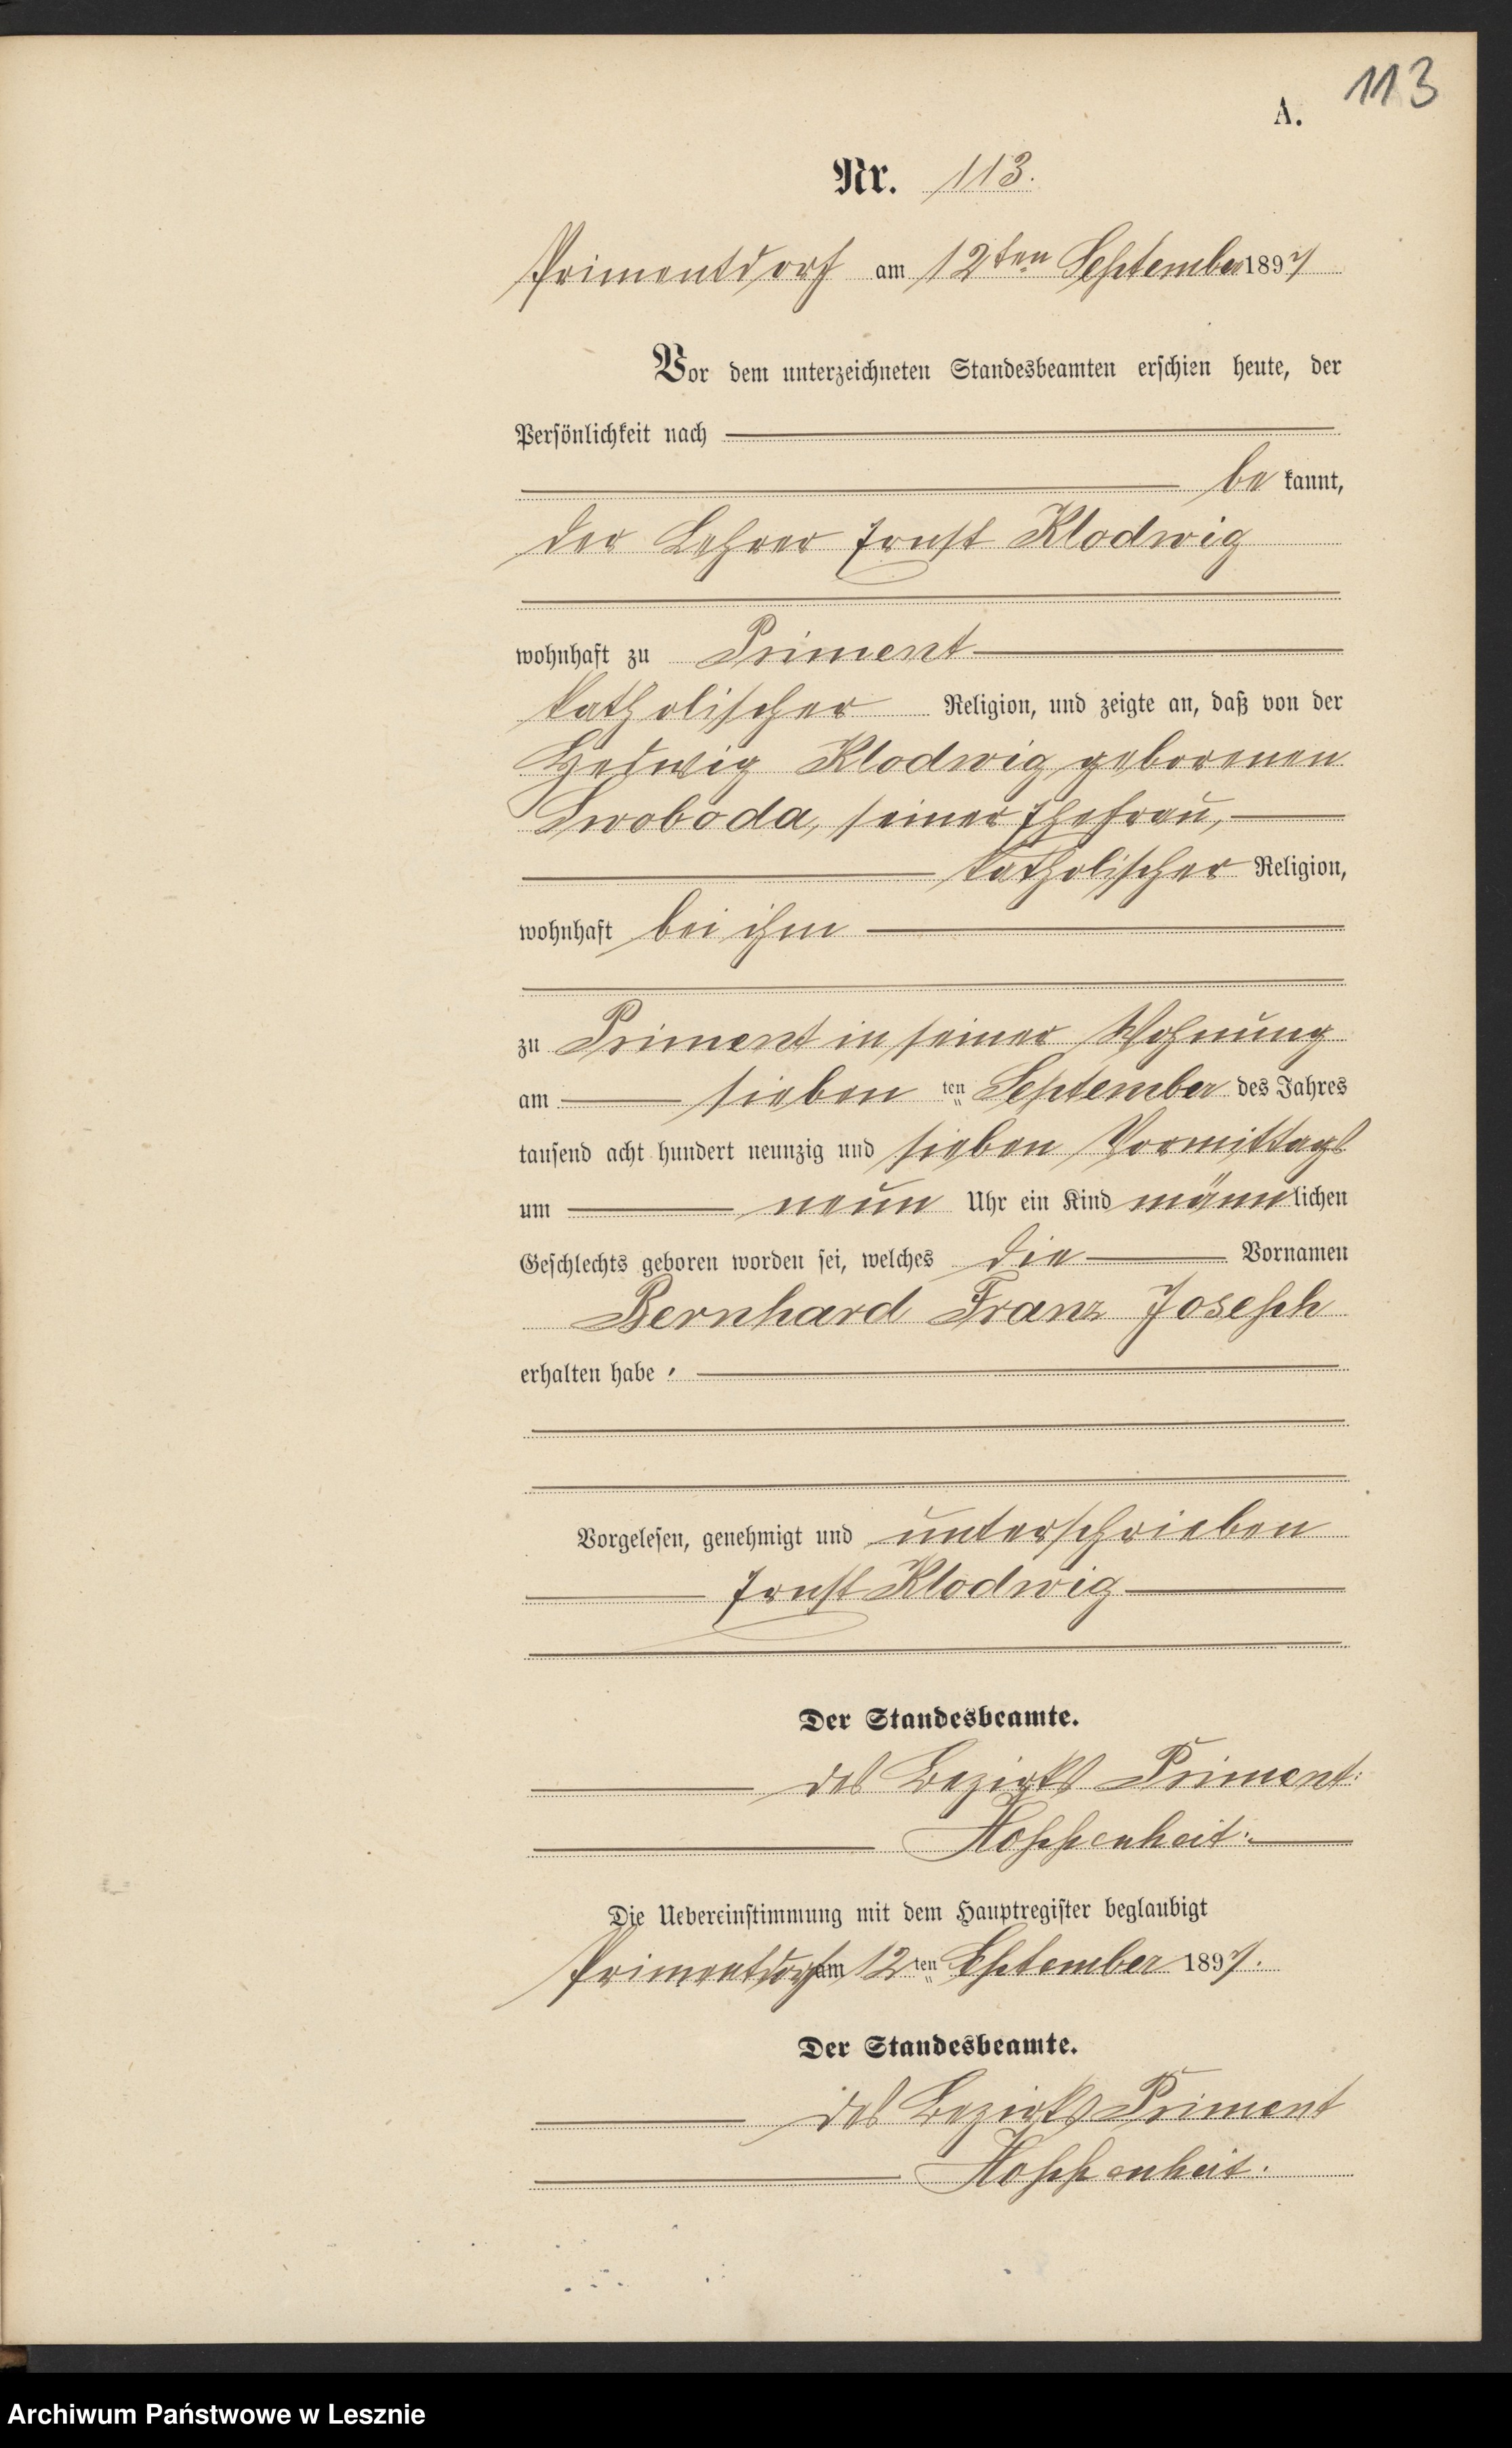 113
A.
Nr. 113.
Primentdorf am 12ten September 1897
Vor dem unterzeichneten Standesbeamten erschien heute, der
Persönlichkeit nach
be kannt,
der Lehrer Ernst Klodwig
wohnhaft zu Priment
katholischer Religion, und zeigte an, daß von der
Hedwig Klodwig geborenen
Swoboda, seiner Ehefrau,
katholischer Religion,
wohnhaft bei ihm
zu Priment in seiner Wohnung
am sieben ten September des Jahres
tausend acht hundert neunzig und sieben Vormittags
um neun Uhr ein Kind männlichen
Geschlechts geboren worden sei, welches die Vornamen
Bernhard Franz Joseph
erhalten habe.
Vorgelesen, genehmigt und unterschrieben
Ernst Klodwig
Der Standesbeamte.
des Bezirks Priment.
Hoppenheit.
Die Uebereinstimmung mit dem Hauptregister beglaubigt
Primentdorf am 12ten September 1897.
Der Standesbeamte.
des Bezirks Priment
Hoppenheit.
Archiwum Państwowe w Lesznie